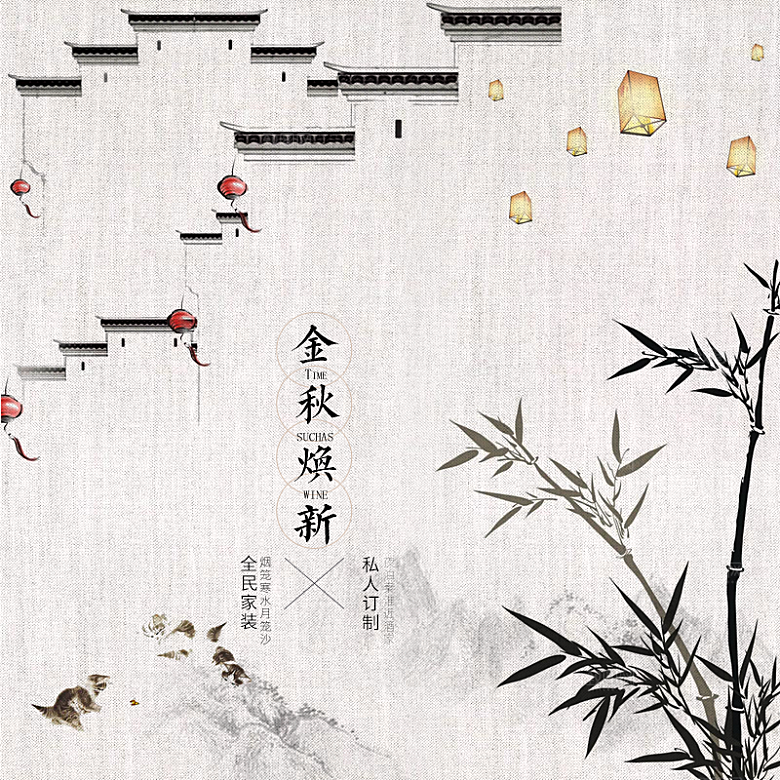 金
TIME
秋
SUCHAS
焕
WINE
新
全民家装
烟笼寒水月笼沙
私人订制